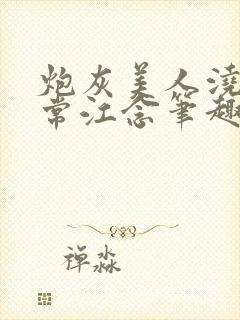 炮灰美人浇
常江念笔趣
禅淼